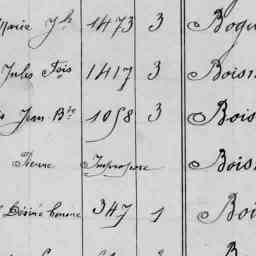 Marie Jh 1473 3 Bogu
Jules Fois 1417 3 Bois
Jean Bte 1058 3 Bois
Pierre Impropose Bois
Désiré 347 1 Boi